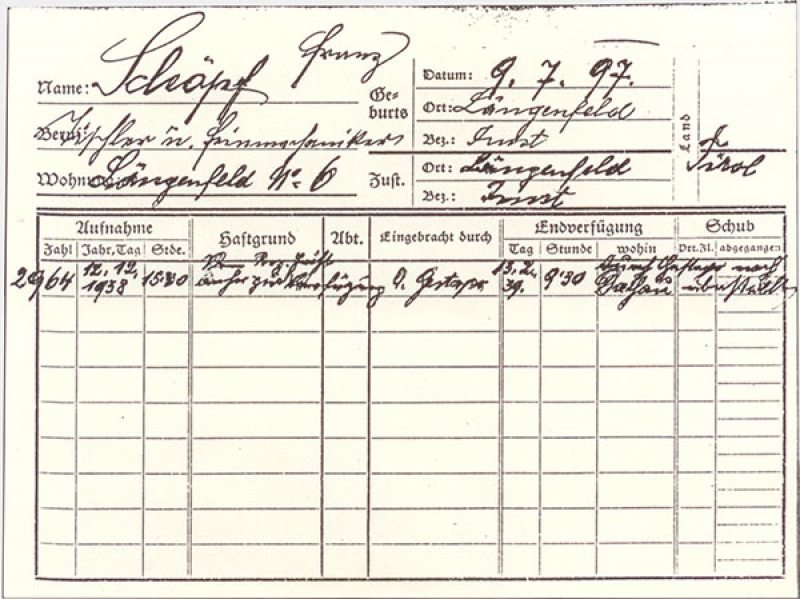 Name: Schöpf Franz
Beruf: Tischler u. Feinmechaniker
Wohnung: Längenfeld No. 6
Geburts
Datum: 9. 7. 97.
Ort: Längenfeld
Bez.: Imst
Zust.
Ort: Längenfeld
Bez.: Imst
Land
Tirol
Aufnahme Haftgrund Abt. Eingebracht durch Endverfügung Schub
Zahl Jahr, Tag Stde. Tag Stunde wohin Ort.Zl. abgegangen
2964 12. 12. 1938 15:30
anher zur Verfügung d. Gestapo
13. 2. 39. 9:30 durch Gestapo nach Dachau überstellt